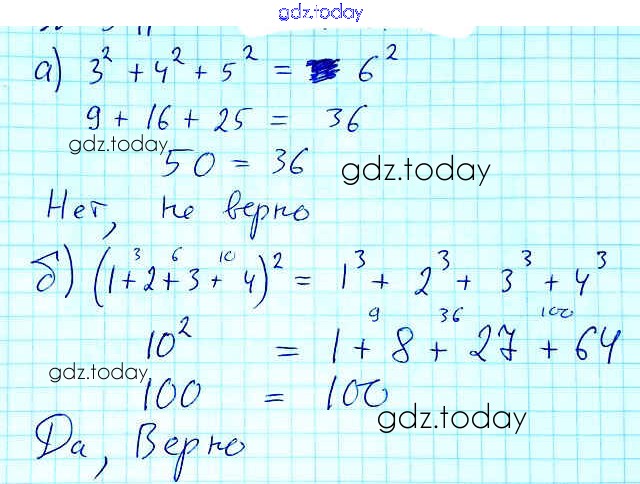 gdz.today
а) 3² + 4² + 5² = 6²
9 + 16 + 25 = 36
gdz.today
50 = 36
gdz.today
Нет, не верно
3 6 10
б) (1+2+3+4)² = 1³ + 2³ + 3³ + 4³
9 36 100
10² = 1 + 8 + 27 + 64
gdz.today
100 = 100
gdz.today
Да, Верно